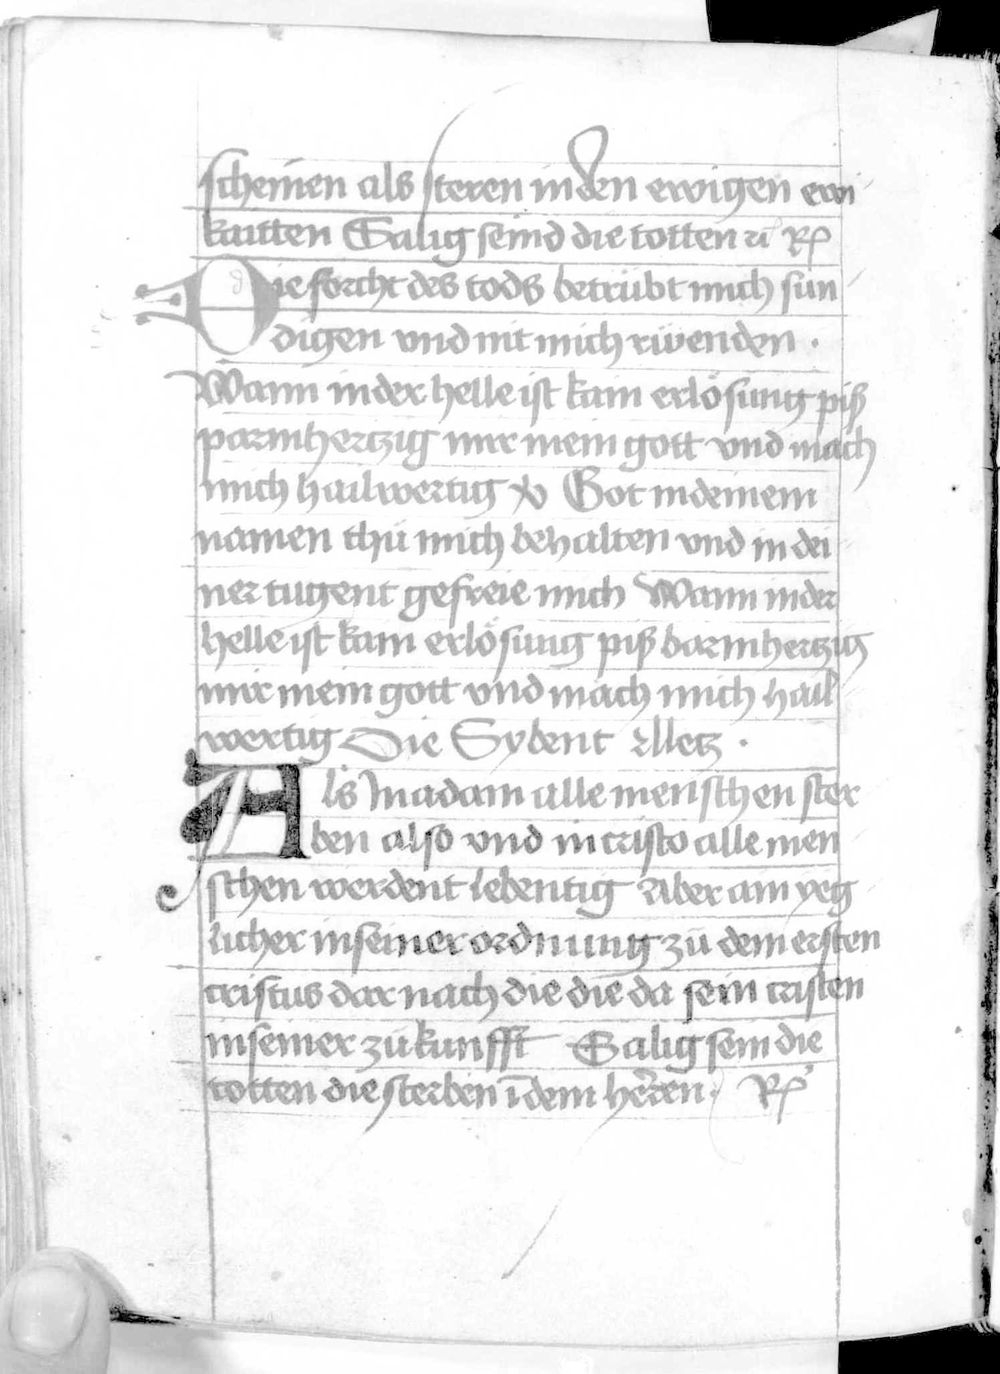 scheinen als steren in den ewigen ewi
kaitten Sälig seind die totten ꝛc Rp
Die forcht des tods betrübt mich sün
digen vnd nit mich rüwenden ·
Wann in der helle ist kain erlösung piß
parmhertzig mir mein gott vnd mach
mich hailwertig V Got in deinem
namen thü mich behalten vnd in dei
ner tugent gefreie mich Wann in der
helle ist kain erlösung piß barmhertzig
mir mein gott vnd mach mich hail
wertig Die Sybent Letz ·
Als in adam alle menschen ster
ben also vnd in cristo alle men
schen werdent lebentig Aber ain yeg
licher in seiner ordnung zü dem ersten
cristus dar nach die die da sein cristen
in seiner zükunfft Sälig sein die
totten die sterben ī dem herren · Rp